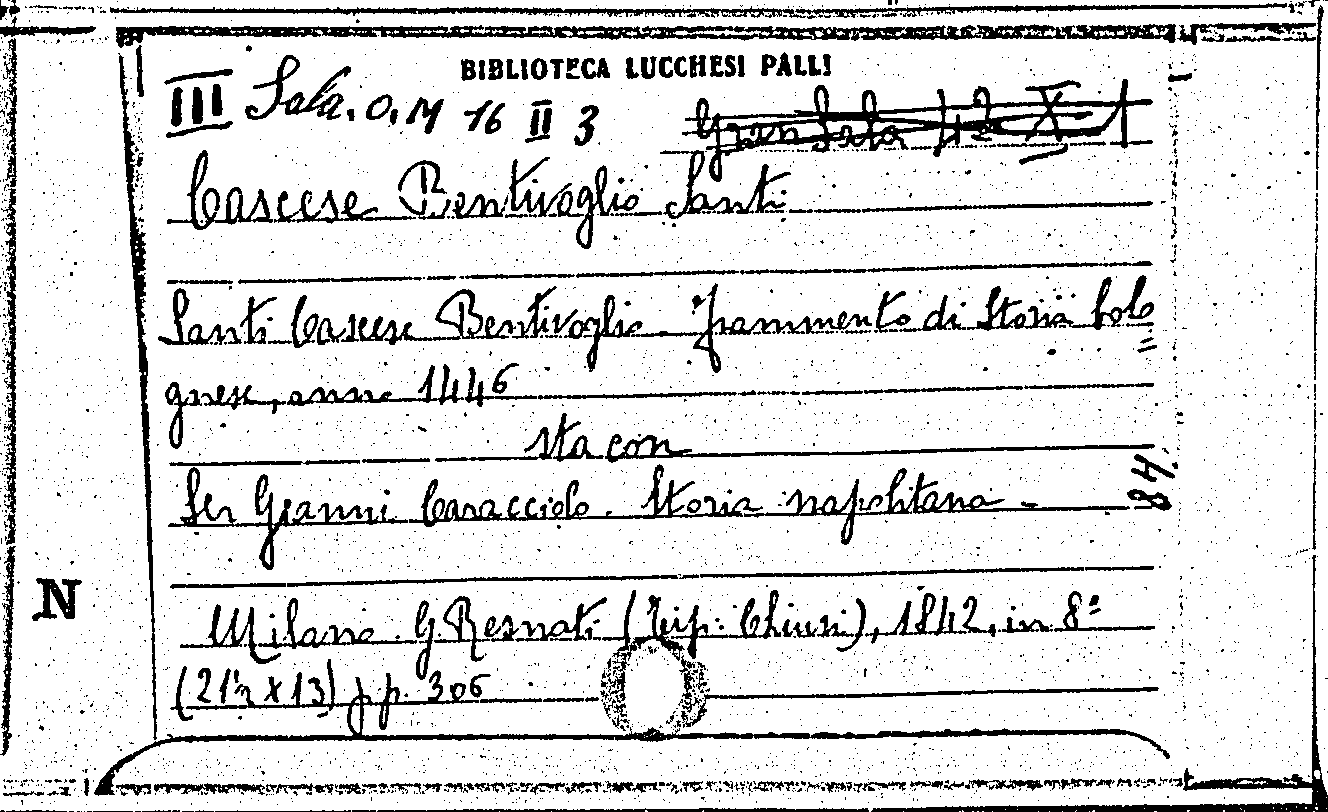 BIBLIOTECA LUCCHESI PALLI
III Sala. O. M 16 II 3
Gran Sala 42 X 1
Cascese Bentivoglio Santi
Santi Cascese Bentivoglio. Frammento di Storia bolo=
gnese, anno 1446
sta con
Ser Gianni Caracciolo. Storia napolitana -
48
N
Milano. G. Resnati (Tip: Chiusi), 1842, in 8º
(21½ x 13) pp. 306